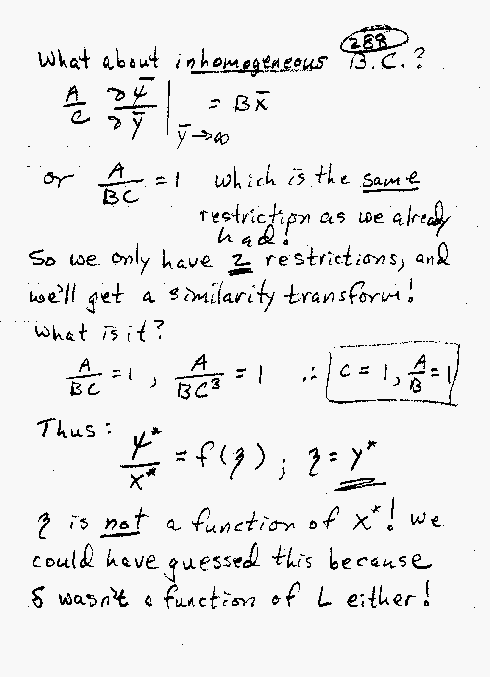 288
What about inhomogeneous B.C.?
A/C ∂Ψ̄/∂ȳ |ȳ→∞ = B x̄
or A/BC = 1 which is the same
restriction as we already
had!
So we only have 2 restrictions, and
we'll get a similarity transform!
What is it?
A/BC = 1 , A/BC³ = 1 ∴ C = 1, A/B = 1
Thus:
Ψ*/x* = f(η) ; η = y*
η is not a function of x*! We
could have guessed this because
δ wasn't a function of L either!